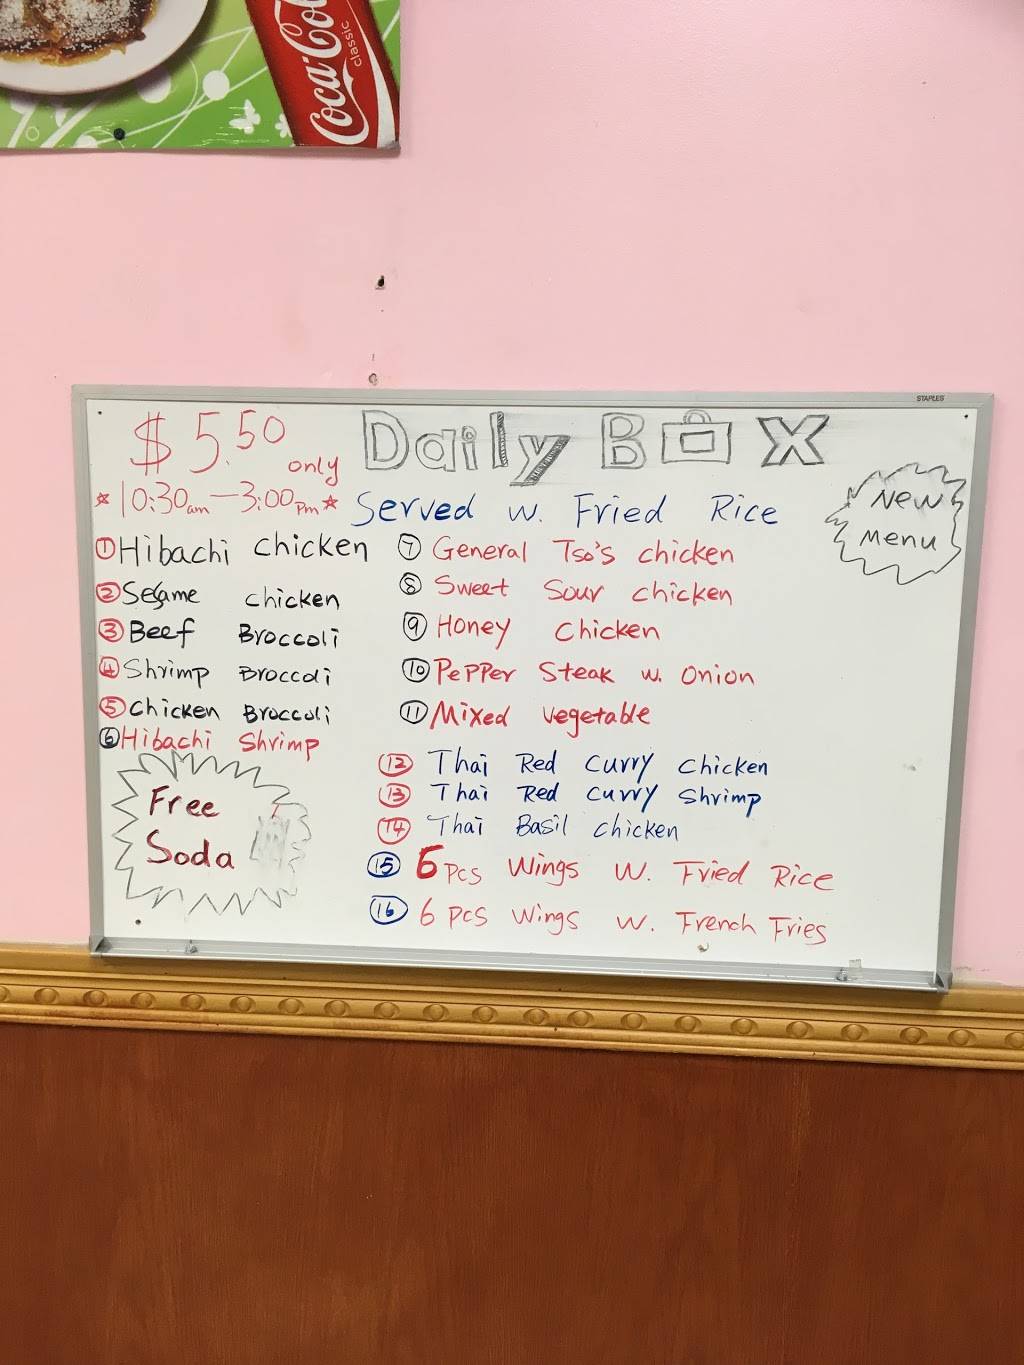 Coca-Cola
classic
STAPLES
$5.50 only
10:30am — 3:00pm
Daily Box
Served w. Fried Rice
New
Menu
1 Hibachi chicken
2 Sesame chicken
3 Beef Broccoli
4 Shrimp Broccoli
5 Chicken Broccoli
6 Hibachi Shrimp
7 General Tso's chicken
8 Sweet Sour chicken
9 Honey chicken
10 Pepper Steak w. onion
11 Mixed vegetable
12 Thai Red Curry chicken
13 Thai Red Curry Shrimp
14 Thai Basil chicken
15 6 pcs Wings w. Fried Rice
16 6 pcs Wings w. French Fries
Free
Soda